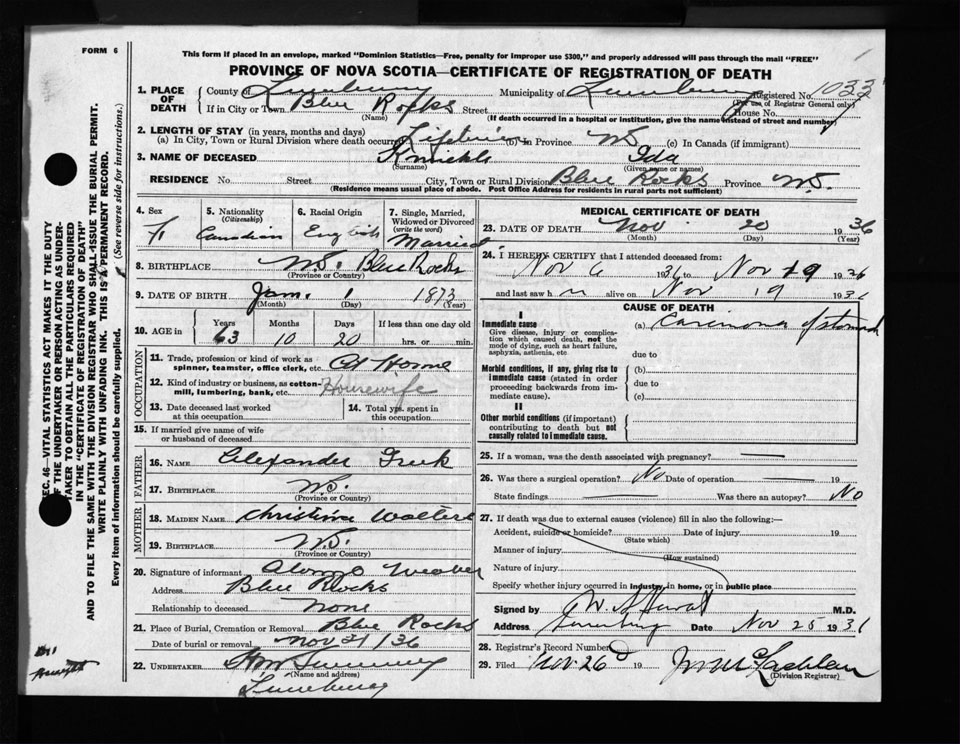 FORM 6
This form if placed in an envelope, marked "Dominion Statistics—Free, penalty for improper use $300," and properly addressed will pass through the mail "FREE"
PROVINCE OF NOVA SCOTIA—CERTIFICATE OF REGISTRATION OF DEATH
1. PLACE OF DEATH County of Lunenburg Municipality of Lunenburg Registered No. 1033
(For use of Registrar General only)
If in City or Town Blue Rocks Street House No.
(Name) (If death occurred in a hospital or institution, give the name instead of street and number)
2. LENGTH OF STAY (in years, months and days)
(a) In City, Town or Rural Division where death occurred Lifetime (b) In Province N.S. (c) In Canada (if immigrant)
3. NAME OF DECEASED Knickle Ida
(Surname) (Given name or names)
RESIDENCE No. Street City, Town or Rural Division Blue Rocks Province N.S.
(Residence means usual place of abode. Post Office Address for residents in rural parts not sufficient)
4. Sex F.
5. Nationality (Citizenship) Canadian
6. Racial Origin English
7. Single, Married, Widowed or Divorced (write the word) Married
8. BIRTHPLACE N.S. Blue Rocks
(Province or Country)
9. DATE OF BIRTH Jan. 1 1873
(Month) (Day) (Year)
10. AGE in Years Months Days If less than one day old
63 10 20 hrs. or min.
OCCUPATION
11. Trade, profession or kind of work as spinner, teamster, office clerk, etc. At Home
12. Kind of industry or business, as cotton-mill, lumbering, bank, etc. Housewife
13. Date deceased last worked at this occupation
14. Total yrs. spent in this occupation
15. If married give name of wife or husband of deceased
FATHER
16. NAME Alexander
17. BIRTHPLACE N.S.
(Province or Country)
MOTHER
18. MAIDEN NAME Christina Walters
19. BIRTHPLACE N.S.
(Province or Country)
20. Signature of informant Alonzo Weaver
Address Blue Rocks
Relationship to deceased None
21. Place of Burial, Cremation or Removal Blue Rocks
Date of burial or removal Nov 21/36
22. UNDERTAKER
(Name and address)
Lunenburg
MEDICAL CERTIFICATE OF DEATH
23. DATE OF DEATH Nov 20 1936
(Month) (Day) (Year)
24. I HEREBY CERTIFY that I attended deceased from:
Nov 6 1936 to Nov 19 1936
and last saw h alive on Nov 19 1936
CAUSE OF DEATH
I
Immediate cause
Give disease, injury or complication which caused death, not the mode of dying, such as heart failure, asphyxia, asthenia, etc
(a) Carcinoma of stomach
due to
Morbid conditions, if any, giving rise to immediate cause (stated in order proceeding backwards from immediate cause).
(b)
due to
(c)
II
Other morbid conditions (if important) contributing to death but not causally related to immediate cause.
25. If a woman, was the death associated with pregnancy?
26. Was there a surgical operation? No Date of operation 19
State findings Was there an autopsy? No
27. If death was due to external causes (violence) fill in also the following:—
Accident, suicide or homicide? Date of injury 19
(State which)
Manner of injury
(How sustained)
Nature of injury
Specify whether injury occurred in industry, in home, or in public place
Signed by M.D.
Address Lunenburg Date Nov 25 1936
28. Registrar's Record Number
29. Filed Nov 26 19
(Division Registrar)
SEC. 46—VITAL STATISTICS ACT MAKES IT THE DUTY
OF THE UNDERTAKER OR PERSON ACTING AS UNDER-
TAKER TO OBTAIN ALL THE PARTICULARS REQUIRED
IN THE "CERTIFICATE OF REGISTRATION OF DEATH"
AND TO FILE THE SAME WITH THE DIVISION REGISTRAR WHO SHALL ISSUE THE BURIAL PERMIT.
WRITE PLAINLY WITH UNFADING INK. THIS IS A PERMANENT RECORD.
Every item of information should be carefully supplied. (See reverse side for instructions.)